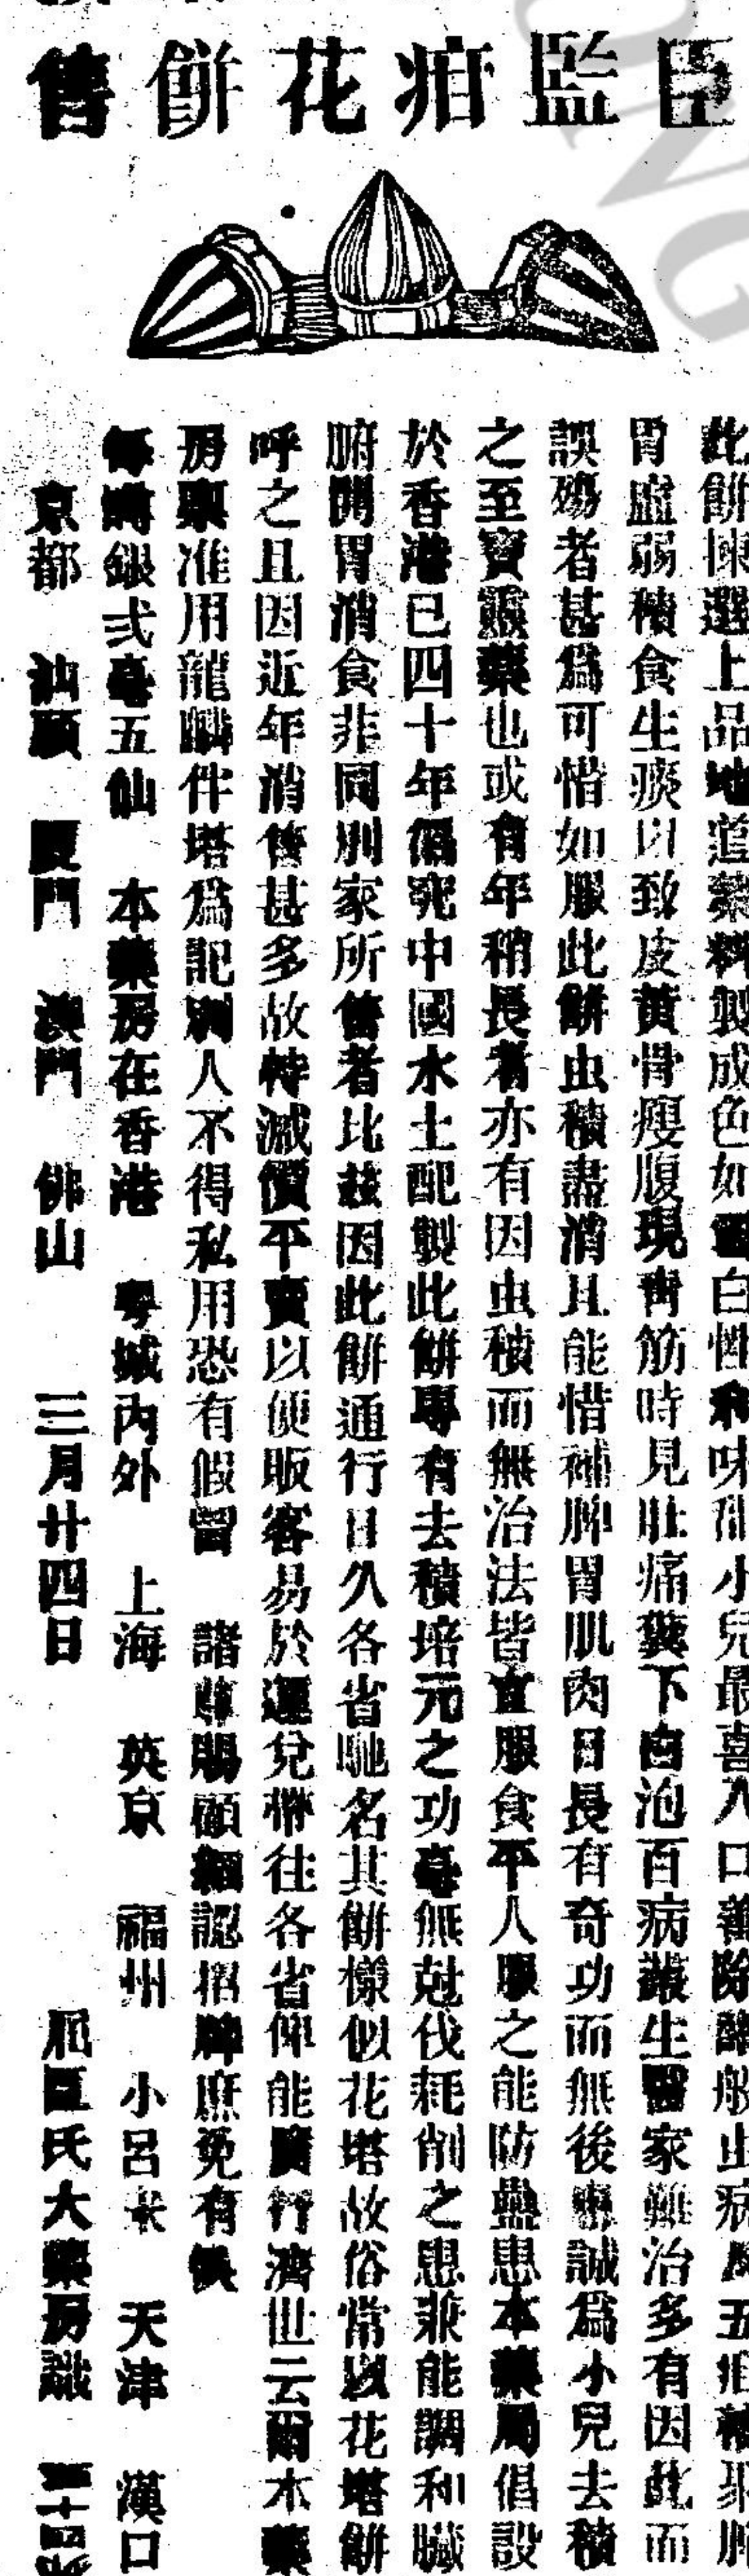 臣監疳花餅售
此餅揀選上品地道藥料製成色如雪白性和味甜小兒最喜入口善除諸般虫病及五疳積聚脾
胃虛弱積食生痰以致皮黃骨瘦腹現青筋時見肚痛糞下白泡百病叢生醫家難治多有因此而
誤殤者甚為可惜如服此餅虫積盡消且能惜補脾胃肌肉日長有奇功而無後患誠為小兒去積
之至寶靈藥也或有年稍長者亦有因虫積而無治法皆宜服食平人服之能防蠱患本藥局倡設
於香港已四十年偹究中國水土配製此餅專有去積培元之功毫無尅伐耗削之患兼能調和臟
腑開胃消食非同別家所售者比茲因此餅通行日久各省馳名其餅樣似花塔故俗常以花塔餅
呼之且因近年消售甚多故特減價平賣以便販客易於運兌帶往各省俾能廣行濟世云爾本藥
房稟准用龍麟伴塔為記別人不得私用恐有假冒 諸尊賜顧細認招牌庶免有悞
每磅銀弍毫五仙 本藥房在香港 粵城內外 上海 英京 福州 小呂宋 天津 漢口
京都 汕頭 廈門 澳門 佛山 三月廿四日 屈臣氏大藥房識